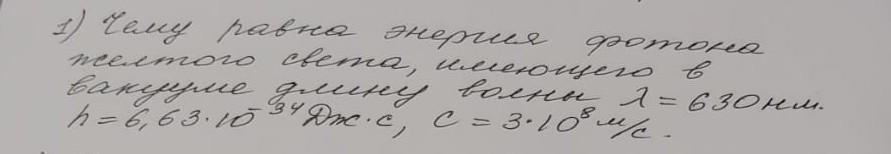 1) Чему равна энергия фотона
желтого света, имеющего в
вакууме длину волны λ = 630 нм.
h = 6,63·10⁻³⁴ Дж·с, c = 3·10⁸ м/с.